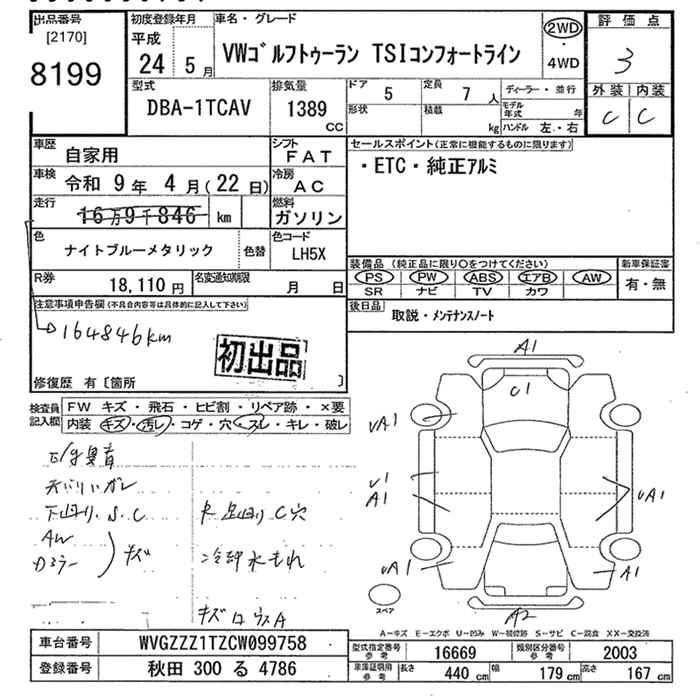 出品番号 初度登録年月 車名・グレード 評価点
[2170] 平成 2WD
8199 24 5月 VWゴルフトゥーラン TSIコンフォートライン ・ 3
4WD
型式 排気量 ドア 5 定員 7人 ディーラー・並行 外装 内装
DBA-1TCAV 1389 CC 形状 積載 kg モデル年式 年 C C
ハンドル 左・右
車歴 自家用 シフト FAT セールスポイント(正常に機能するものに限ります)
車検 令和 9年 4月(22日) 冷房 AC ・ETC・純正アルミ
走行 16万9千846 km 燃料 ガソリン
色 ナイトブルーメタリック 色替 色コード LH5X
装備品 (純正品に限り○をつけてください) 新車保証書
R券 18,110円 名変通知期限 月 日 PS PW ABS エアB AW 有・無
SR ナビ TV カワ
注意事項申告欄(不具合内容等は具体的に記入して下さい) 後日品 取説・メンテナンスノート
164846km
初出品
修復歴 有〔箇所 〕
検査員記入欄 FW キズ・飛石・ヒビ割・リペア跡・×要
内装 キズ・汚レ・コゲ・穴・スレ・キレ・破レ
下回り S.C
AW
Dミラー キズ
冷却水もれ
A1
C1
UA1
U1
A1
UA1
UA1
A1
A2
スペア
A-キズ E-エクボ U-凹み W-補修跡 S-サビ C-腐食 XX-交換済
車台番号 WVGZZZ1TZCW099758 型式指定番号 参考 16669 類別区分番号 参考 2003
登録番号 秋田 300 る 4786 車庫証明用 参考 長さ 440 cm 幅 179 cm 高さ 167 cm